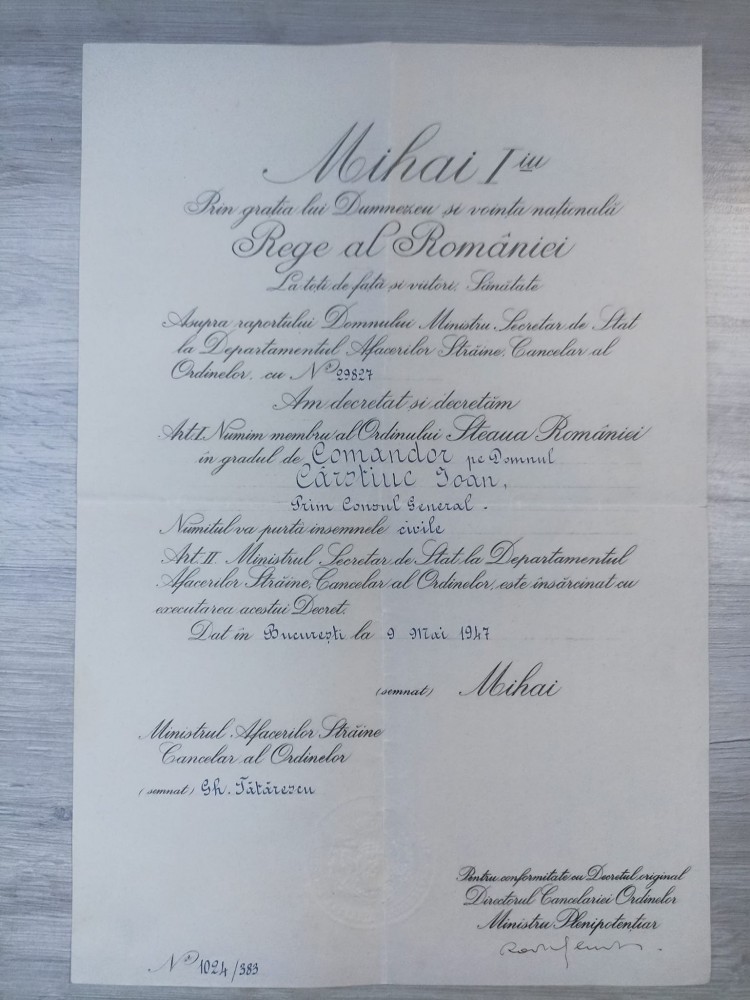 Mihai I iu
Prin grația lui Dumnezeu și voința națională
Rege al României
La toți de față și viitori, Sănătate
Asupra raportului Domnului Ministru Secretar de Stat
la Departamentul Afacerilor Străine, Cancelar al
Ordinelor, cu No 29827
Am decretat și decretăm
Art. I. Numim membru al Ordinului Steaua României
în gradul de Comandor pe Domnul
Cărstiuc Ioan,
Prim Consul General.
Numitul va purta insemnele civile
Art. II. Ministrul Secretar de Stat la Departamentul
Afacerilor Străine, Cancelar al Ordinelor, este însărcinat cu
executarea acestui Decret.
Dat în București la 9 Mai 1947
(semnat) Mihai
Ministrul Afacerilor Străine
Cancelar al Ordinelor
(semnat) Gh. Tătărescu
Pentru conformitate cu Decretul original
Directorul Cancelariei Ordinelor
Ministru Plenipotențiar
No 1024/383